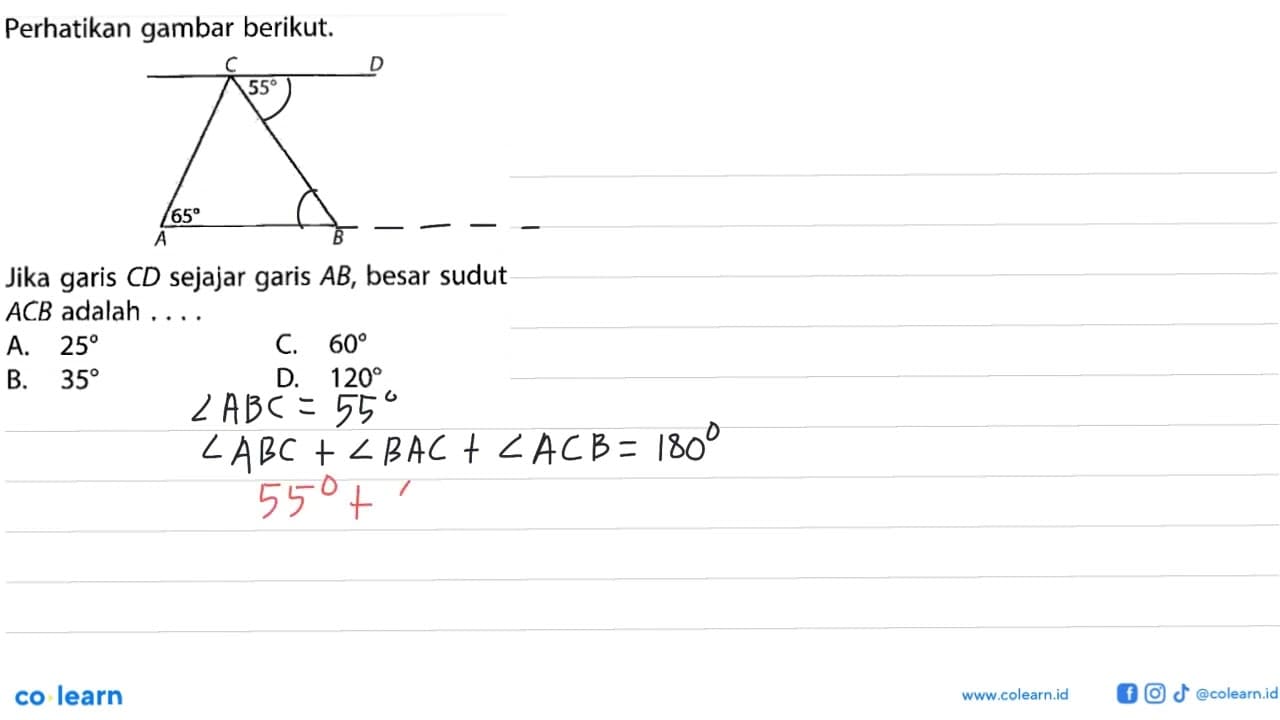 Perhatikan gambar berikut.
C D
55°
65°
A B
Jika garis CD sejajar garis AB, besar sudut
ACB adalah . . . .
A. 25° C. 60°
B. 35° D. 120°
∠ABC = 55°
∠ABC + ∠BAC + ∠ACB = 180°
55° +
co learn
www.colearn.id @colearn.id